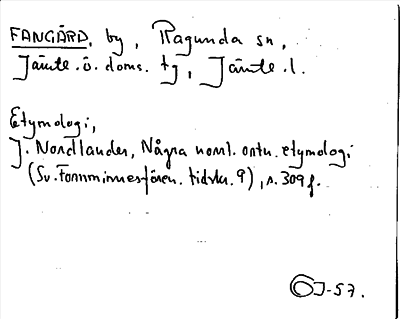 FANGÅRD, by, Ragunda sn,
Jämtl. ö. doms. tg, Jämtl. l.
Etymologi,
J. Nordlander, Några norrl. ortn. etymologi
(Sv. Fornminnesfören. tidskr. 9), s. 309 f.
OJ-57.